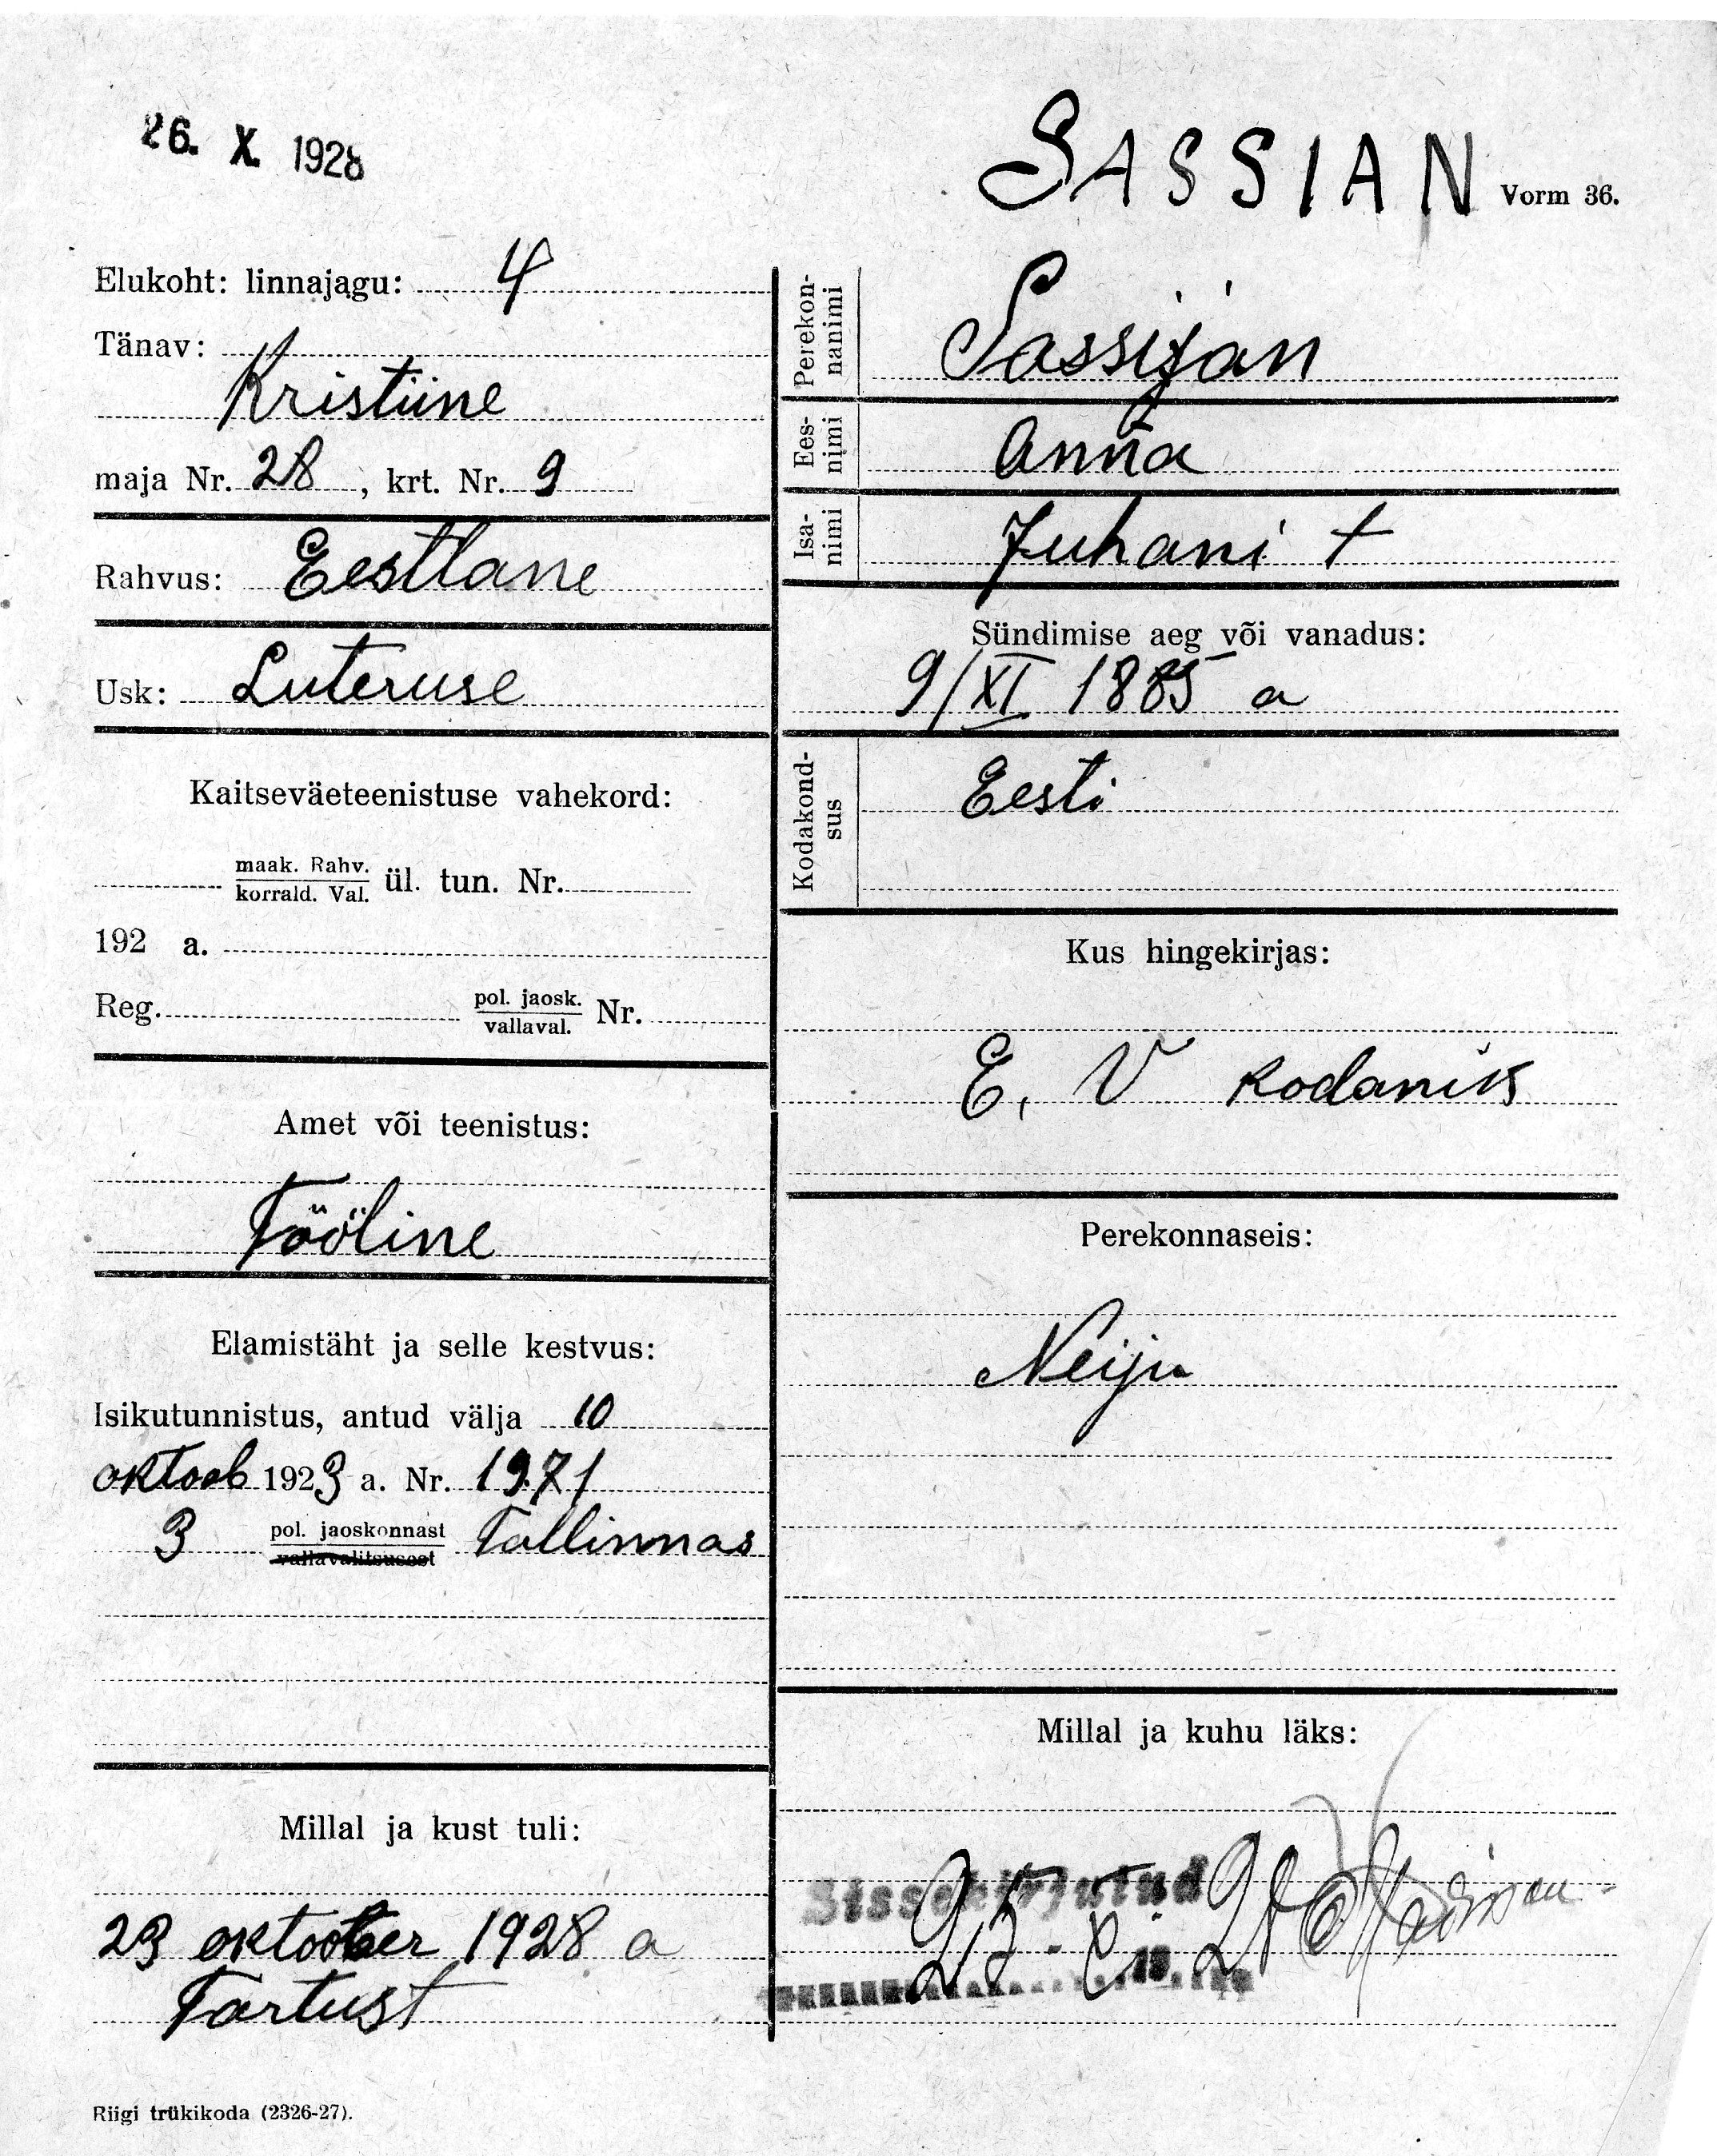 26. X. 1928
SASSIAN
Vorm 36.
Elukoht: linnajagu: 4
Tänav:
Kristiine
maja Nr. 28, krt. Nr. 9
Rahvus: Eestlane
Usk: Luteruse
Kaitseväeteenistuse vahekord:
maak. Rahv.
korrald. Val. ül. tun. Nr.
192 a.
Reg. pol. jaosk.
vallaval. Nr.
Amet või teenistus:
Tööline
Elamistäht ja selle kestvus:
Isikutunnistus, antud välja 10
oktoob 1923 a. Nr. 1971
3 pol. jaoskonnast Tallinnas
vallavalitsusest
Millal ja kust tuli:
23 oktoober 1928 a
Tartust
Perekon-
nanimi
Sassijan
Ees-
nimi
Anna
Isa-
nimi
Juhani †
Sündimise aeg või vanadus:
9/XI 1885 a
Kodakond-
sus
Eesti
Kus hingekirjas:
E. V kodanik
Perekonnaseis:
Neiju
Millal ja kuhu läks:
Sissekirjutud
Riigi trükikoda (2326-27).